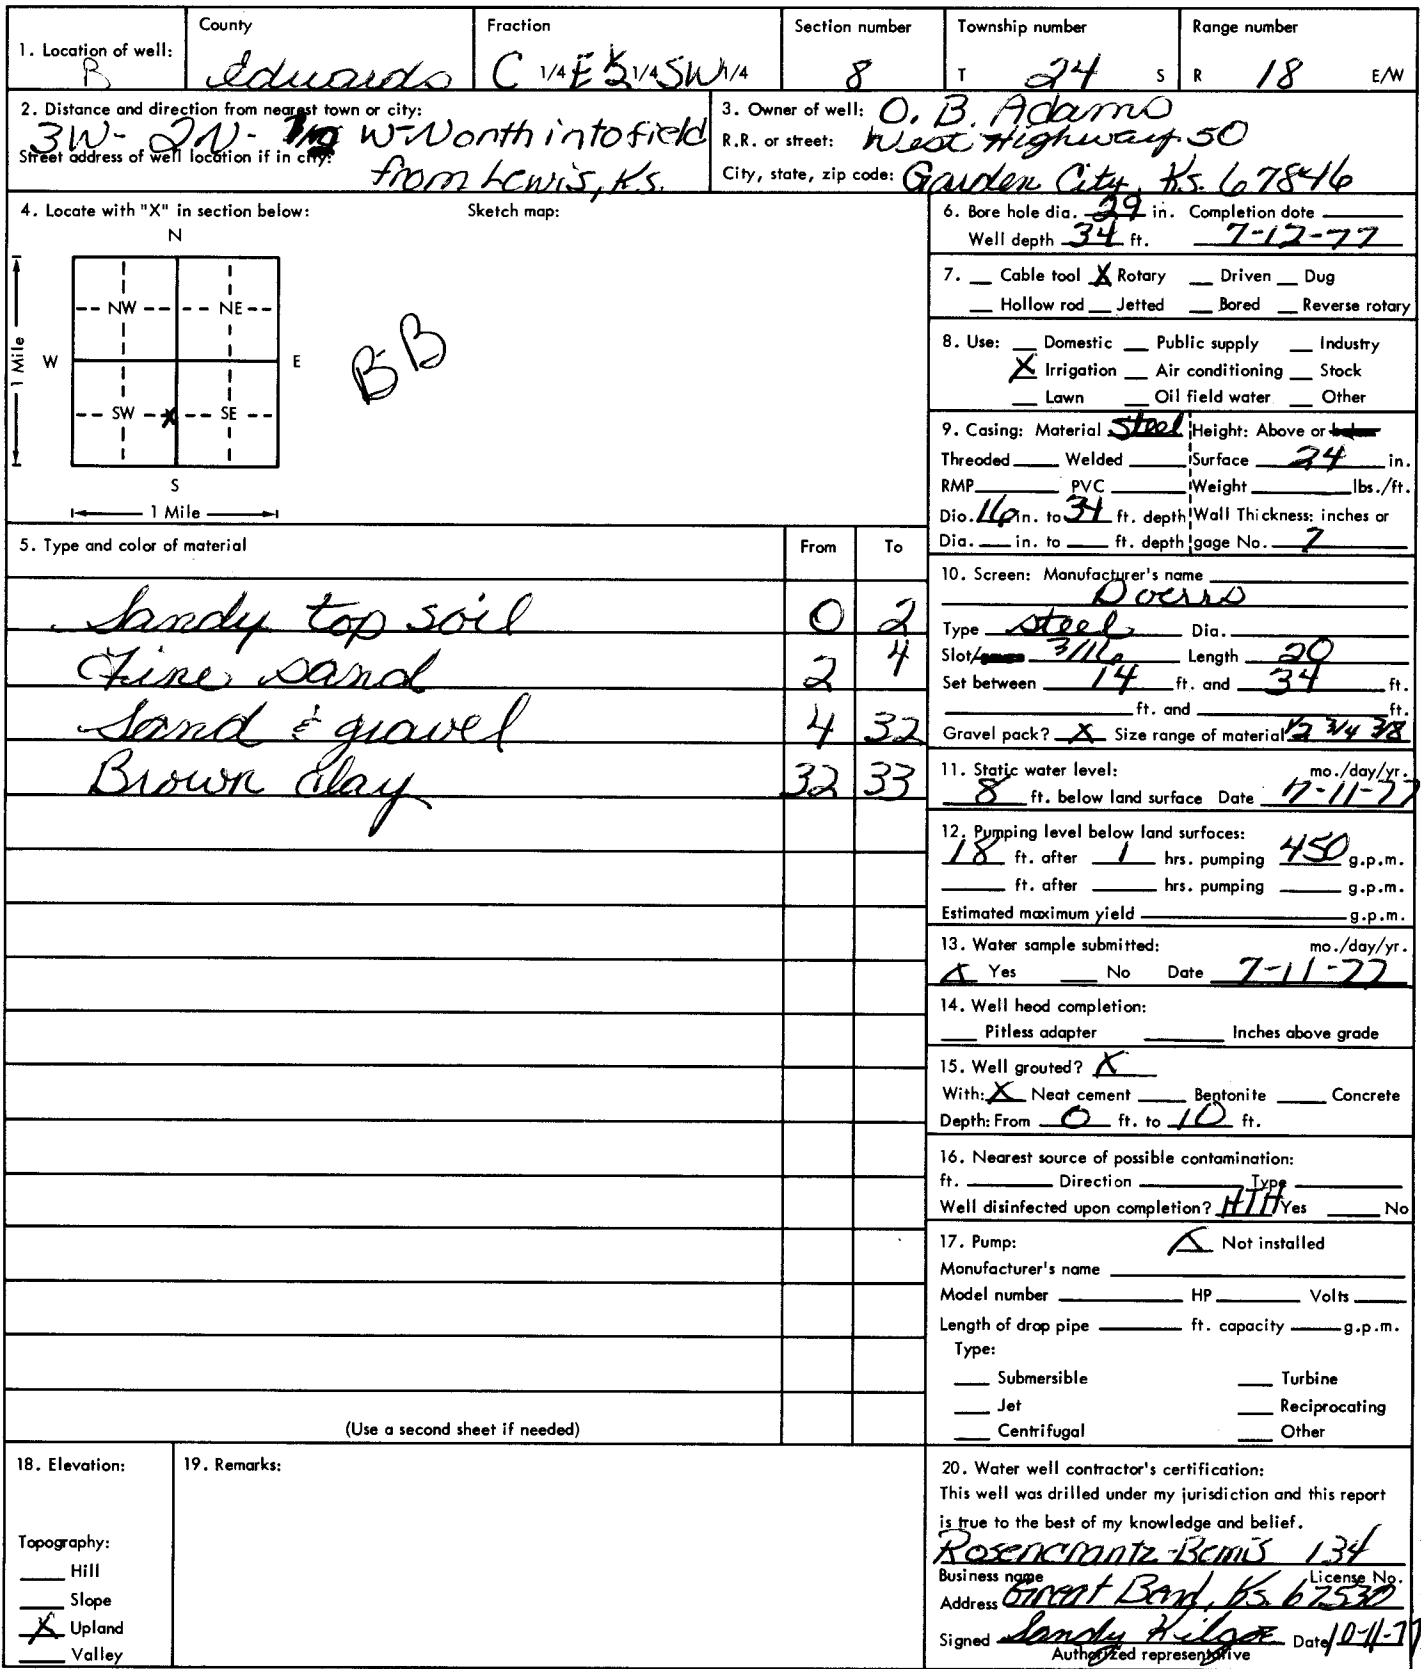 1. Location of well: County Fraction Section number Township number Range number
B Edwards C 1/4 E 1/2 1/4 SW 1/4 8 T 24 S R 18 E/W
2. Distance and direction from nearest town or city:
3W- 2N- W-North into field
Street address of well location if in city:
from Lewis, Ks.
3. Owner of well: O. B. Adams
R.R. or street: West Highway 50
City, state, zip code: Garden City, Ks. 67846
4. Locate with "X" in section below: Sketch map:
N
NW NE
W E
SW X SE
S
1 Mile
1 Mile
B-B
5. Type and color of material From To
Sandy top soil 0 2
Fine sand 2 4
Sand & gravel 4 32
Brown clay 32 33
(Use a second sheet if needed)
6. Bore hole dia. 29 in. Completion date
Well depth 34 ft. 7-12-77
7. Cable tool X Rotary Driven Dug
Hollow rod Jetted Bored Reverse rotary
8. Use: Domestic Public supply Industry
X Irrigation Air conditioning Stock
Lawn Oil field water Other
9. Casing: Material Steel Height: Above or below
Threaded Welded Surface 24 in.
RMP PVC Weight lbs./ft.
Dia. 16 in. to 34 ft. depth Wall Thickness: inches or
Dia. in. to ft. depth gage No. 7
10. Screen: Manufacturer's name
Doerrs
Type steel Dia.
Slot/ 3/16 Length 20
Set between 14 ft. and 34 ft.
ft. and ft.
Gravel pack? X Size range of material 1/2 3/4 3/8
11. Static water level: mo./day/yr.
8 ft. below land surface Date 7-11-77
12. Pumping level below land surfaces:
18 ft. after 1 hrs. pumping 450 g.p.m.
ft. after hrs. pumping g.p.m.
Estimated maximum yield g.p.m.
13. Water sample submitted: mo./day/yr.
X Yes No Date 7-11-77
14. Well head completion:
Pitless adapter Inches above grade
15. Well grouted? X
With: X Neat cement Bentonite Concrete
Depth: From 0 ft. to 10 ft.
16. Nearest source of possible contamination:
ft. Direction Type
Well disinfected upon completion? HTH Yes No
17. Pump: X Not installed
Manufacturer's name
Model number HP Volts
Length of drop pipe ft. capacity g.p.m.
Type:
Submersible Turbine
Jet Reciprocating
Centrifugal Other
18. Elevation:
Topography:
Hill
Slope
X Upland
Valley
19. Remarks:
20. Water well contractor's certification:
This well was drilled under my jurisdiction and this report
is true to the best of my knowledge and belief.
Rosencrantz-Bemis 134
Business name License No.
Address Great Bend, Ks. 67530
Signed Sandy Kilgoe Date 10-11-77
Authorized representative